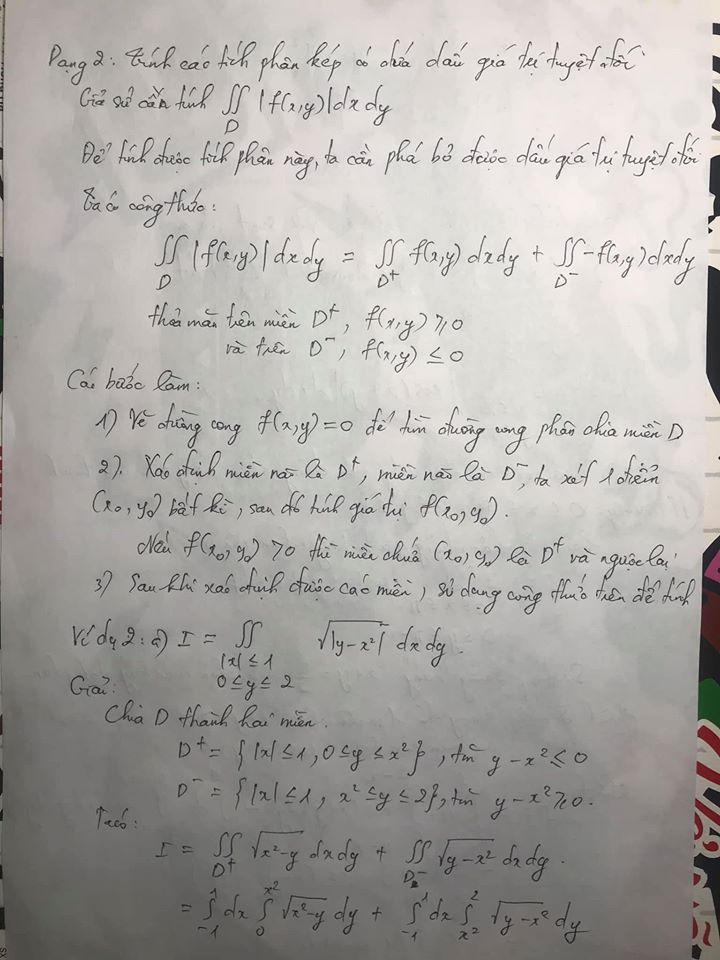 Dạng 2: Tính các tích phân kép có chứa dấu giá trị tuyệt đối
Giả sử cần tính ∬_D |f(x,y)| dx dy
Để tính được tích phân này, ta cần phá bỏ được dấu giá trị tuyệt đối
Ta có công thức:
∬_D |f(x,y)| dx dy = ∬_{D⁺} f(x,y) dx dy + ∬_{D⁻} -f(x,y) dx dy
thoả mãn trên miền D⁺, f(x,y) ≥ 0
và trên D⁻, f(x,y) ≤ 0
Các bước làm:
1) Vẽ đường cong f(x,y) = 0 để tìm đường cong phân chia miền D
2). Xác định miền nào là D⁺, miền nào là D⁻, ta xét 1 điểm
(x₀, y₀) bất kì, sau đó tính giá trị f(x₀, y₀).
Nếu f(x₀, y₀) > 0 thì miền chứa (x₀, y₀) là D⁺ và ngược lại
3) Sau khi xác định được các miền, sử dụng công thức trên để tính
Ví dụ 2: a) I = ∬_{|x| ≤ 1, 0 ≤ y ≤ 2} √|y - x²| dx dy.
Giải:
Chia D thành hai miền.
D⁺ = { |x| ≤ 1, 0 ≤ y ≤ x² }, tức y - x² ≤ 0
D⁻ = { |x| ≤ 1, x² ≤ y ≤ 2 }, tức y - x² ≥ 0.
Ta có:
I = ∬_{D⁺} √(x² - y) dx dy + ∬_{D⁻} √(y - x²) dx dy.
= ∫_{-1}^{1} dx ∫_0^{x²} √(x² - y) dy + ∫_{-1}^{1} dx ∫_{x²}^{2} √(y - x²) dy